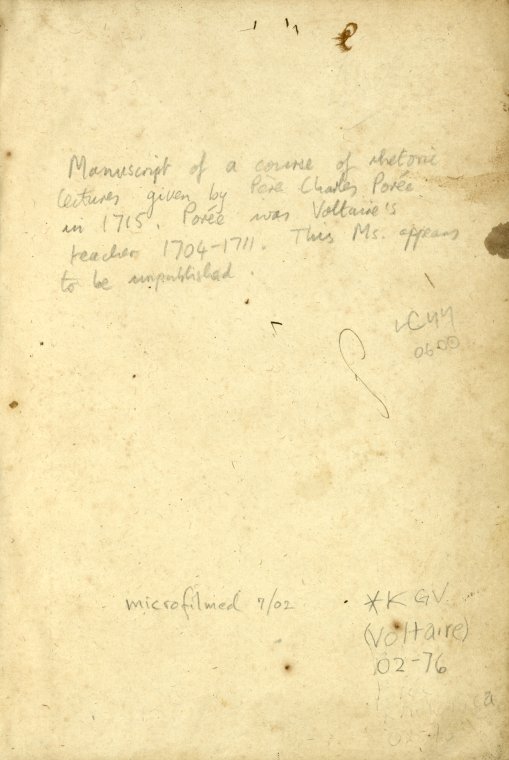 Manuscript of a course of rhetoric
lectures given by Père Charles Porée
in 1715. Porée was Voltaire's
teacher 1704-1711. This Ms. appears
to be unpublished.
microfilmed 7/02
*KGV
(Voltaire)
02-76